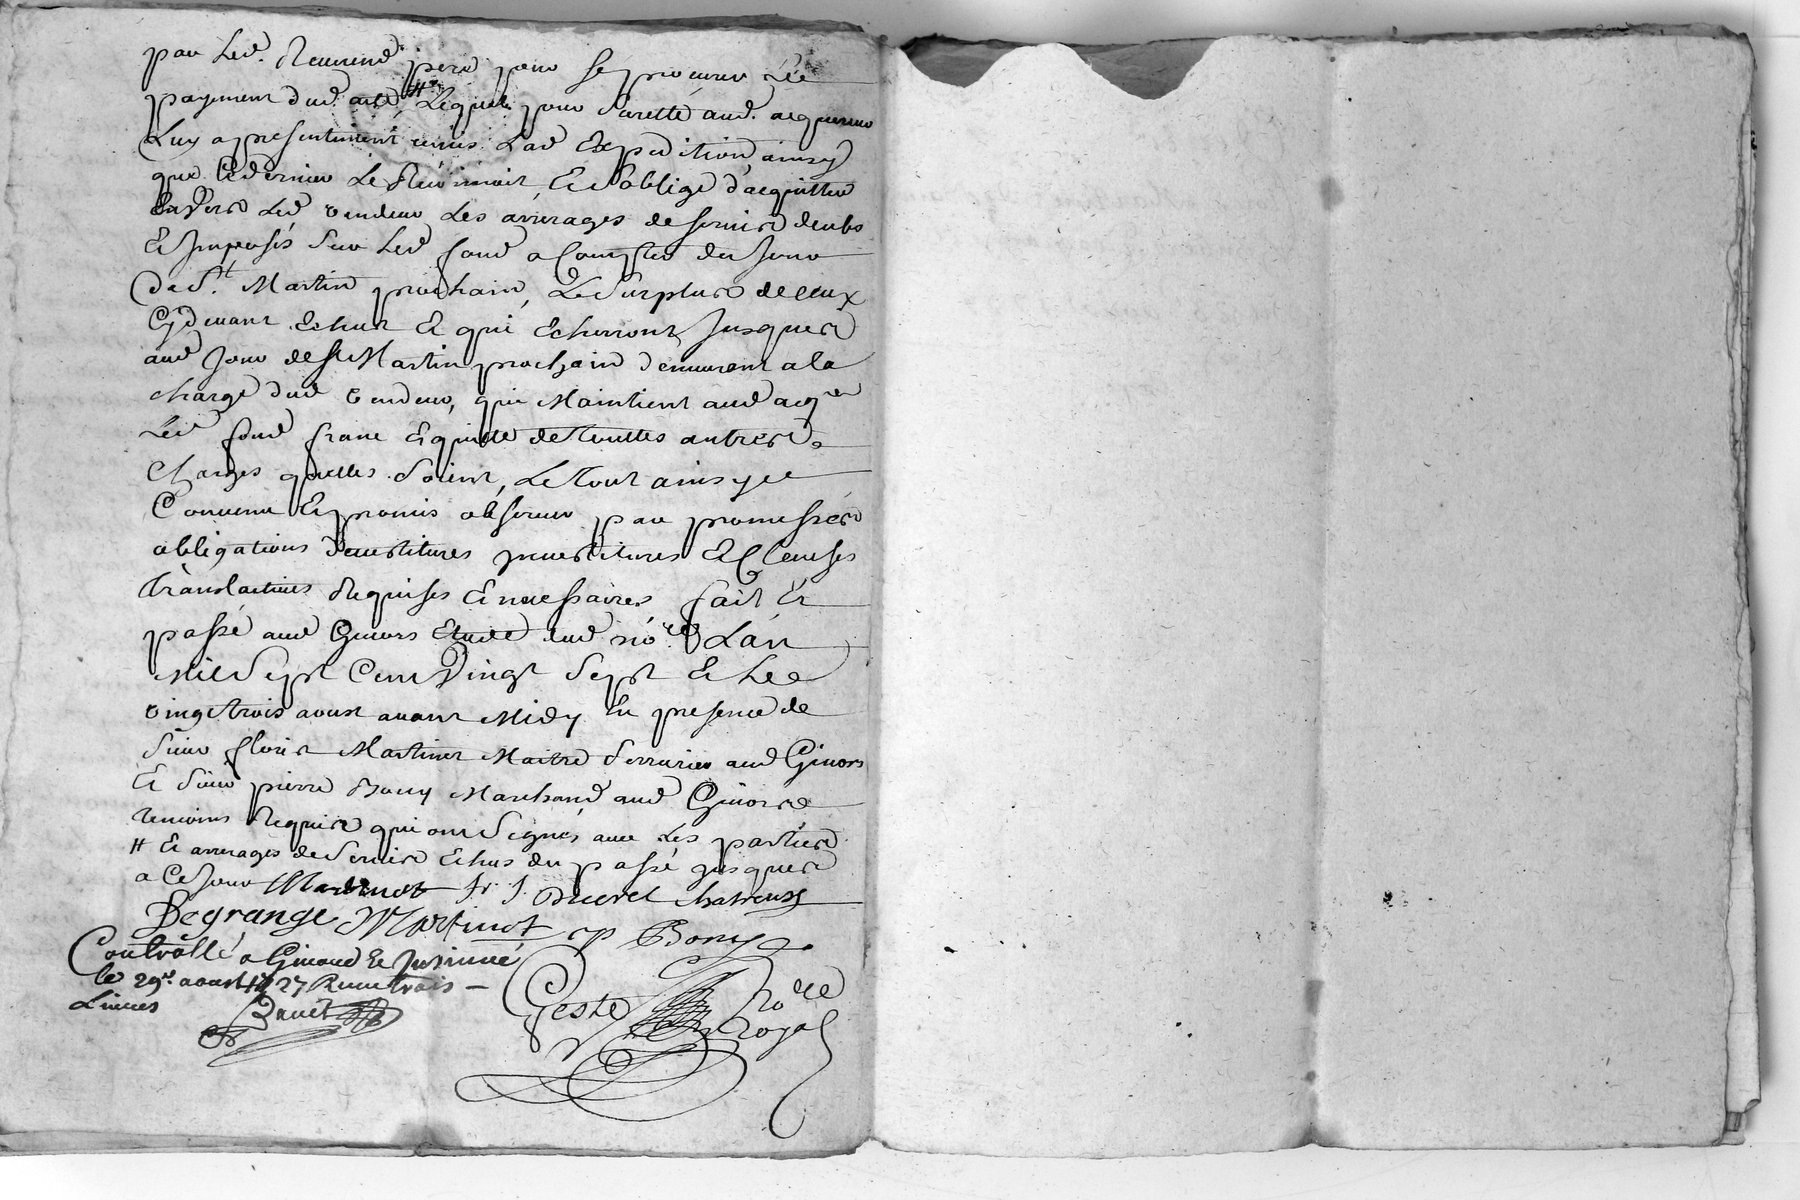 par led. Reverend pere pour se procurer le
payement dud. acte # lequel pour Suretté aud. acquereur
Luy a presentement remis lad Expedition ainsy
que Ce dernier Le Reconnoit Et s'oblige d'acquitter
Envers Led vendeur Les arrerages de servis deubs
Et Imposés Sur Led fond a Compter du Jour
de St. Martin prochain, Le Surplus de ceux
Cydevant Echus Et qui Echerront Jusques
aud Jour de St Martin prochain demeurent a la
charge dud vendeur, qui Maintient aud acqer
Led fond franc Et quitte de Touttes autres
Charges quelles Soient, Le Tout ainsy
Convenu Et promis observer par promesses
obligations devestitures investitures Et Clauses
Translatives Requises Et necessaires fait Et
passé aud Givors Etude dud no.re L'an
Mil Sept Cent Vingt Sept Et Le
vingt trois aoust avant Midy En presence de
Sieur Martinot Maitre Serrurier aud Givors
Et Sieur pierre Bony Marchand aud Givors
temoins Requis qui ont Signés avec Les parties
# Et arrerages de Servis Echus du passé jusques
a Ce Jour Martinot fr. J. Ducret chatreux
Degrange Martinot p Bony
Controllé a Givors Et Insinué
le 29e aoust 1727 Receu trois
Livres
Geste no.re
Royal